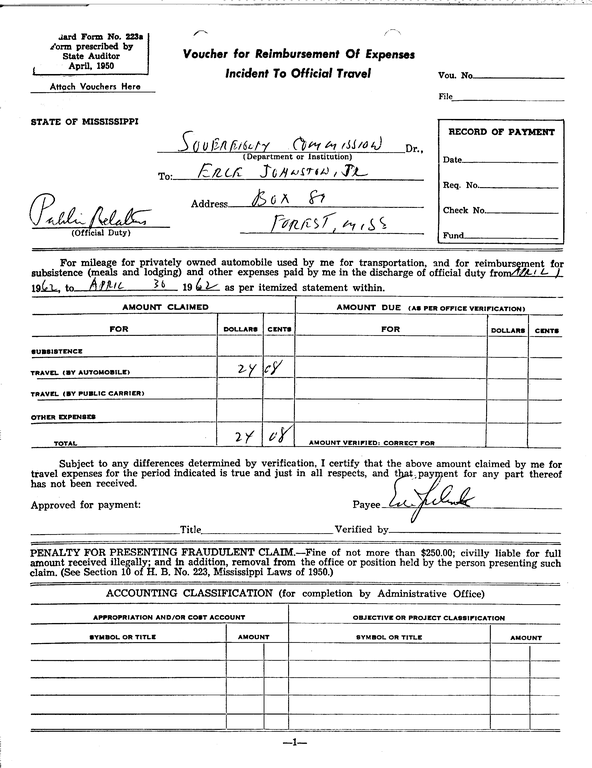 dard Form No. 223a
Form prescribed by
State Auditor
April, 1950
Attach Vouchers Here
Voucher for Reimbursement Of Expenses
Incident To Official Travel
Vou. No.
File
STATE OF MISSISSIPPI
SOVEREIGNTY COMMISSION Dr.,
(Department or Institution)
To: ERLE JOHNSTON, JR
Address BOX 87
FOREST, MISS
Public Relations
(Official Duty)
RECORD OF PAYMENT
Date
Req. No.
Check No.
Fund
For mileage for privately owned automobile used by me for transportation, and for reimbursement for
subsistence (meals and lodging) and other expenses paid by me in the discharge of official duty from APRIL 1
1962, to APRIL 30 1962 as per itemized statement within.
AMOUNT CLAIMED AMOUNT DUE (AS PER OFFICE VERIFICATION)
FOR DOLLARS CENTS FOR DOLLARS CENTS
SUBSISTENCE
TRAVEL (BY AUTOMOBILE) 24 08
TRAVEL (BY PUBLIC CARRIER)
OTHER EXPENSES
TOTAL 24 08 AMOUNT VERIFIED: CORRECT FOR
Subject to any differences determined by verification, I certify that the above amount claimed by me for
travel expenses for the period indicated is true and just in all respects, and that payment for any part thereof
has not been received.
Approved for payment: Payee Erle Johnston
Title Verified by
PENALTY FOR PRESENTING FRAUDULENT CLAIM.—Fine of not more than $250.00; civilly liable for full
amount received illegally; and in addition, removal from the office or position held by the person presenting such
claim. (See Section 10 of H. B. No. 223, Mississippi Laws of 1950.)
ACCOUNTING CLASSIFICATION (for completion by Administrative Office)
APPROPRIATION AND/OR COST ACCOUNT OBJECTIVE OR PROJECT CLASSIFICATION
SYMBOL OR TITLE AMOUNT SYMBOL OR TITLE AMOUNT
—1—